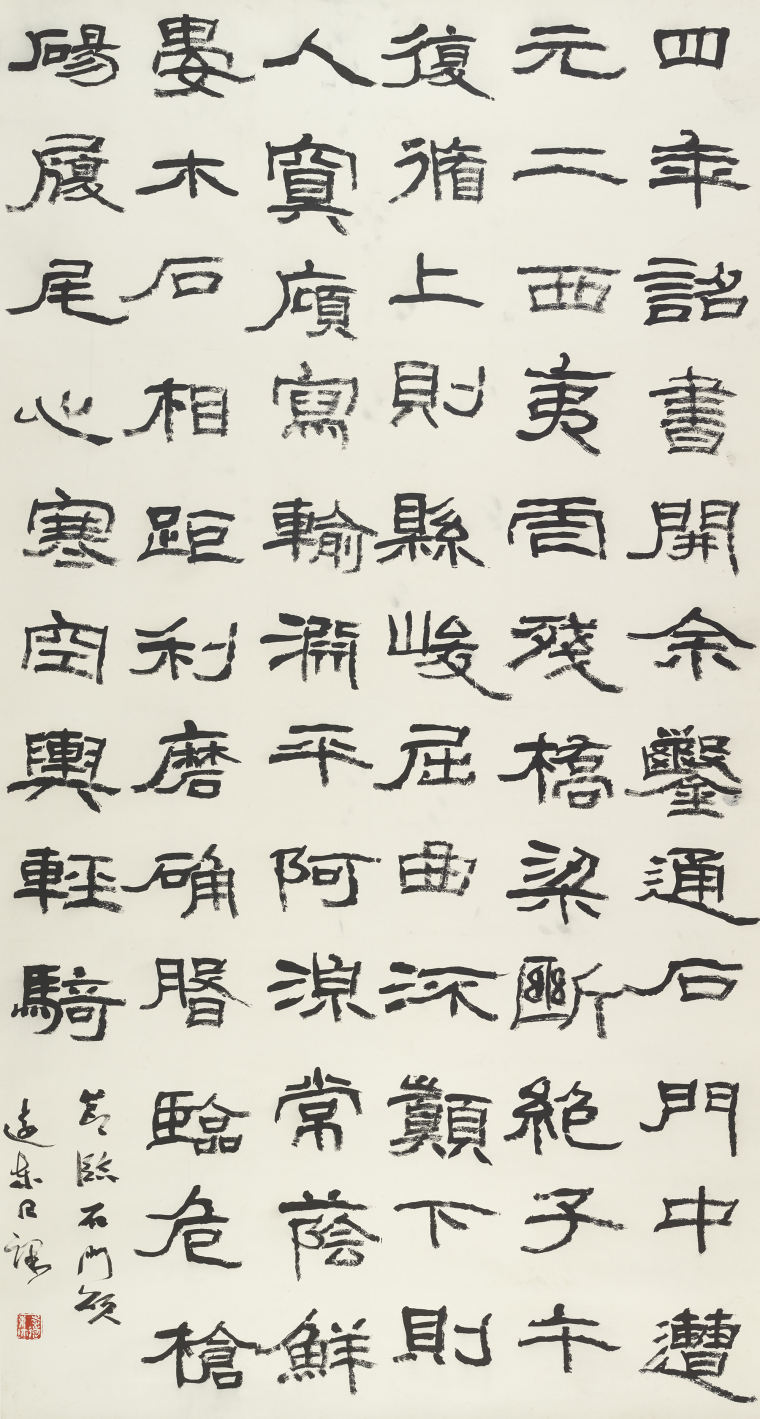 四年詔書開余鑿通石門中遭
元二西夷虐殘橋梁斷絕子午
復循上則縣峻屈曲流顛下則
入冥廎寫輸淵平阿湶常蔭鮮
晏木石相距利磨确臨危槍
碭履尾心寒空輿輕騎
節臨石門頌